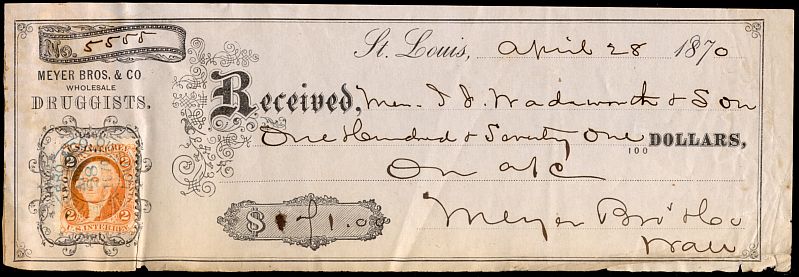 No. 5555
St. Louis, April 28 1870
MEYER BROS. & CO
WHOLESALE
DRUGGISTS.
Received, Wadsworth & Son
One Hundred & Seventy One 100 DOLLARS,
On a/c
$ 171.00
Meyer Bro's & Co
U.S. INTER. REV.
2 2
2 2
U.S. INTER. REV.